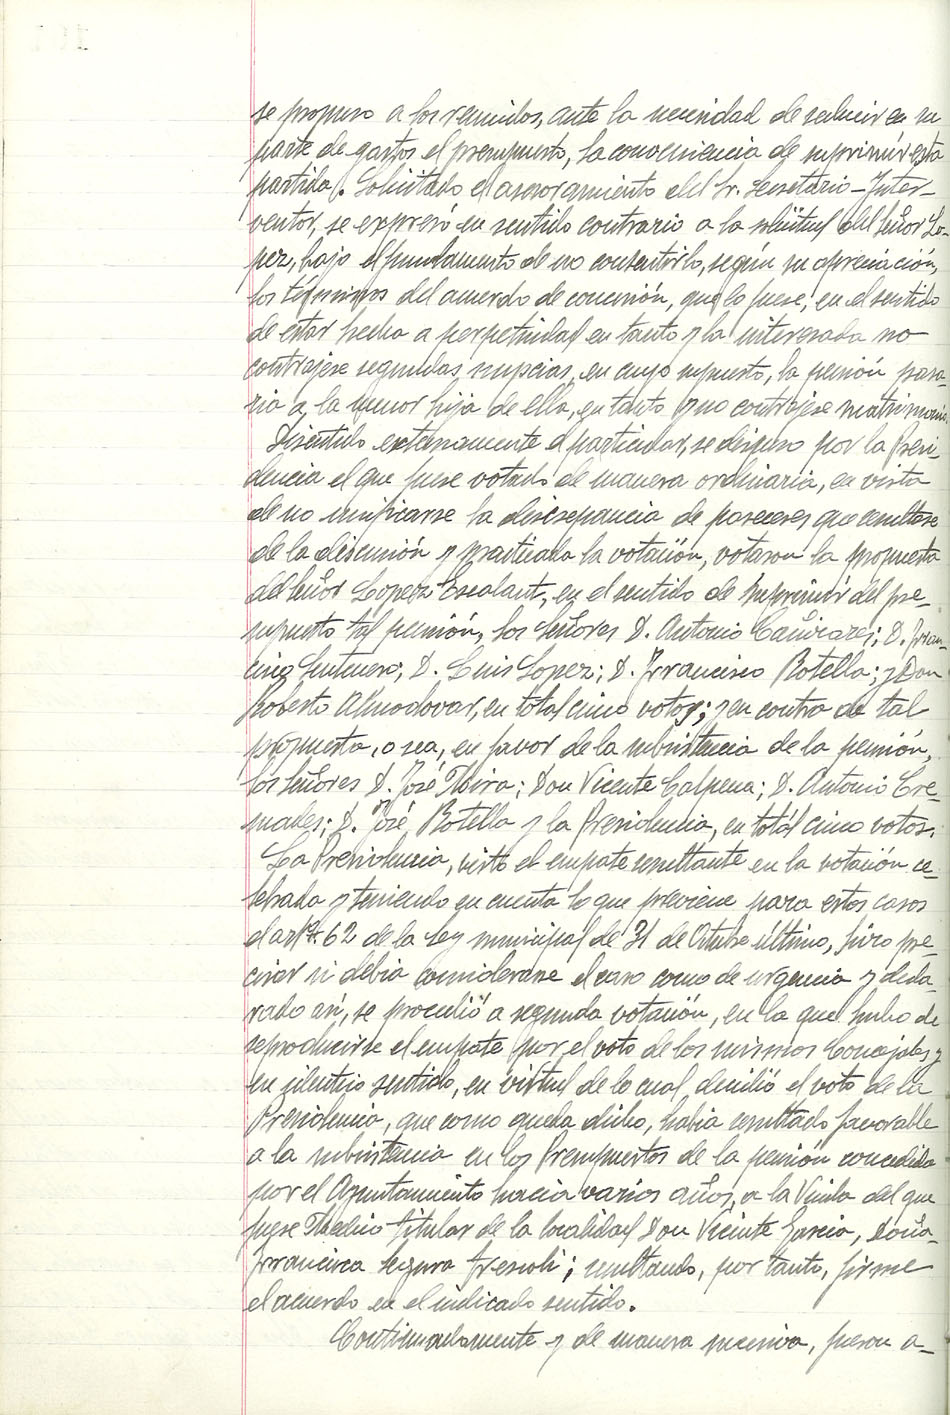 se propuso a los reunidos, ante la necesidad de reducir en su
parte de gastos el presupuesto, la conveniencia de suprimir esta
partida. Solicitado el asesoramiento del Sr. Secretario-Inter-
ventor, se expresó en sentido contrario a la solicitud del Señor Lo-
pez, bajo el fundamento de no consentirlo, según su apreciación,
los términos del acuerdo de concesión, que lo fuese, en el sentido
de estar hecha a perpetuidad en tanto y la interesada no
contrajese segundas nupcias, en cuyo supuesto, la pensión pasa-
ria a la menor hija de ella, en tanto y no contrajese matrimonio.
Discutido extensamente el particular, se dispuso por la Presi-
dencia el que fuese votado de manera ordinaria, en vista
de no unificarse la discrepancia de pareceres que resultase
de la discusión y practicada la votación, votaron la propuesta
del Señor Lopez Escalant, en el sentido de suprimir del pre-
supuesto tal pensión, los Señores D. Antonio Cañizares; D. Fran-
cisco Sentenero; D. Luis Lopez; D. Francisco Botella; y Don
Roberto Almodovar, en total cinco votos; y en contra de tal
propuesta, o sea, en favor de la subsistencia de la pensión,
los Señores D. José Mira; Don Vicente Calpena; D. Antonio Cre-
mades; D. José Botella y la Presidencia, en total cinco votos.
La Presidencia, visto el empate resultante en la votación ce-
lebrada y teniendo en cuenta lo que previene para estos casos
el artº. 62 de la Ley municipal de 31 de Octubre último, hizo pre-
cisar si debia considerarse el caso como de urgencia y decla-
rado así, se procedió a segunda votación, en la que hubo de
reproducirse el empate por el voto de los mismos Concejales y
en identico sentido, en virtud de lo cual, decidió el voto de la
Presidencia, que como queda dicho, habia resultado favorable
a la subsistencia en los Presupuestos de la pensión concedida
por el Ayuntamiento hacia varios años, a la Viuda del que
fuese Medico titular de la localidad Don Vicente Garcia, Doña
Francisca Segura ; resultando, por tanto, firme
el acuerdo en el indicado sentido.
Continuadamente y de manera sucesiva, fueron a-